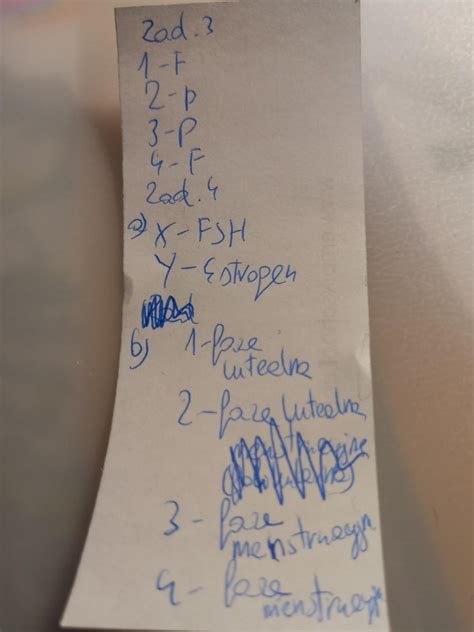 Zad.3
1-F
2-p
3-P
4-F
Zad.4
a) X-FSH
Y-Estrogen
b) 1-faza
lutealna
2-faza lutealna
3-faza
menstruacyjn
4-faza
menstruacyj